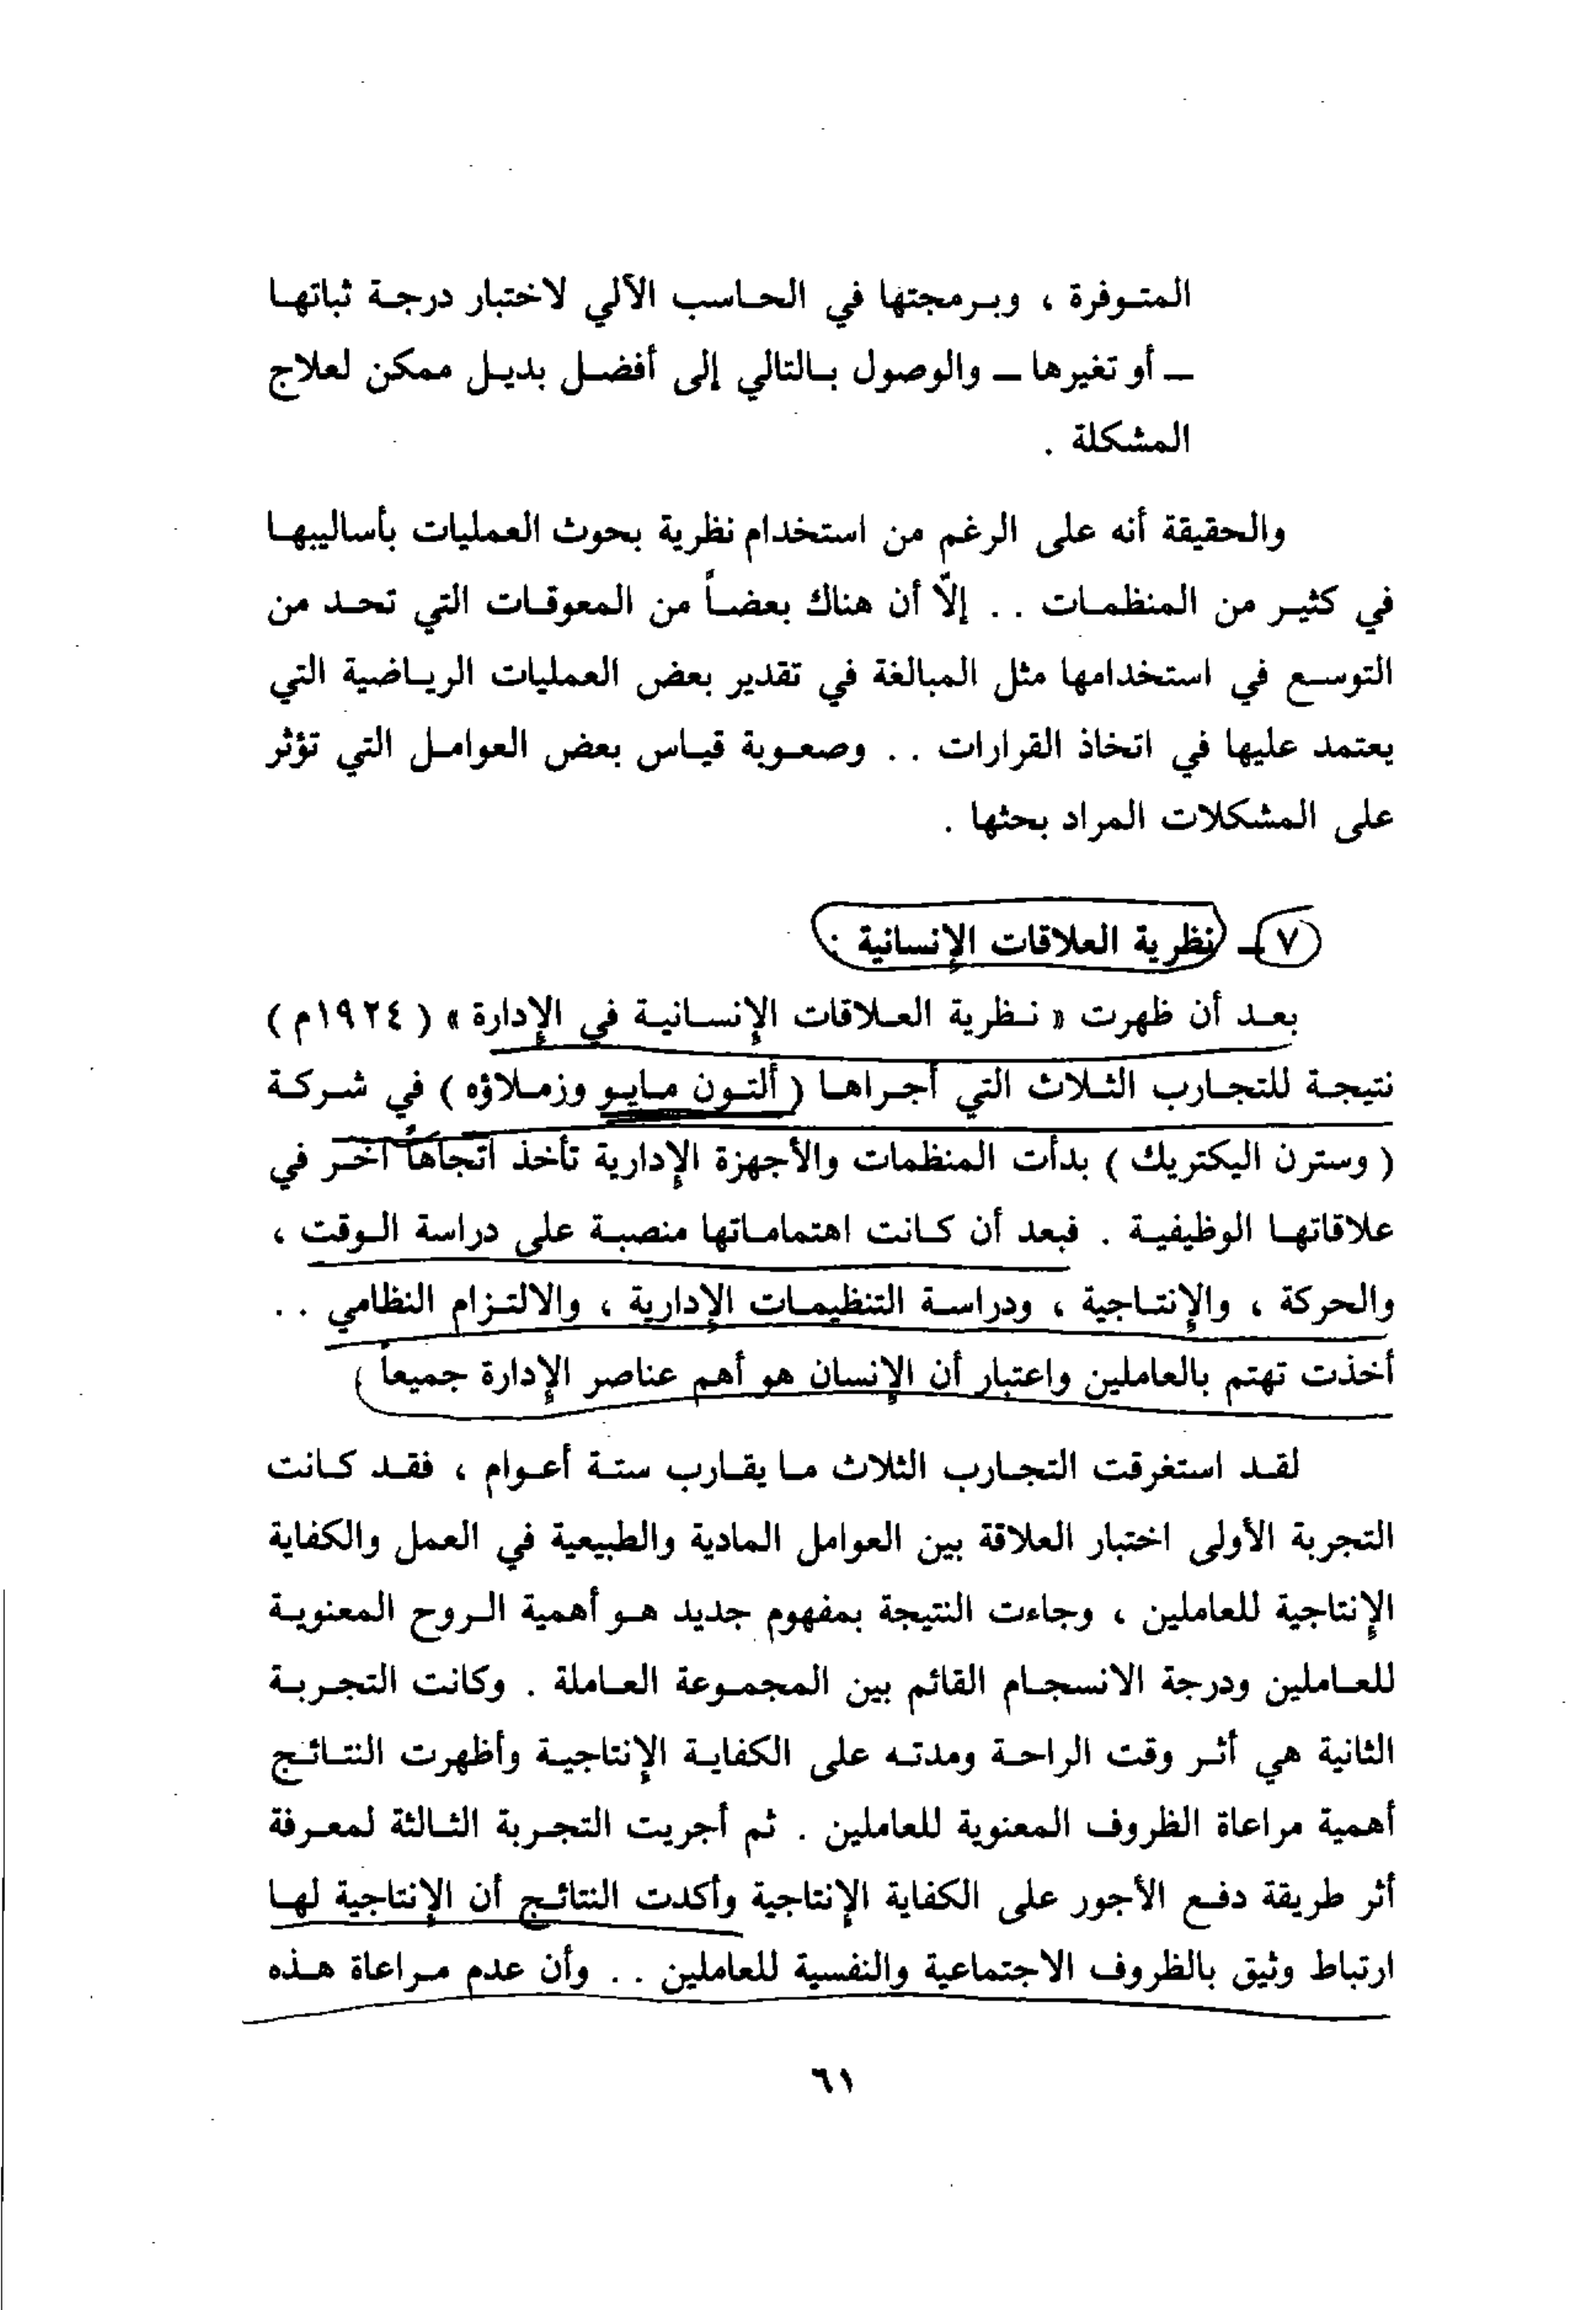 المتوفرة ، وبرمجتها في الحاسب الآلي لاختبار درجة ثباتها
ـ أو تغيرها ـ والوصول بالتالي إلى أفضل بديل ممكن لعلاج
المشكلة .
والحقيقة أنه على الرغم من استخدام نظرية بحوث العمليات بأساليبها
في كثير من المنظمات . . إلاّ أن هناك بعضاً من المعوقات التي تحد من
التوسع في استخدامها مثل المبالغة في تقدير بعض العمليات الرياضية التي
يعتمد عليها في اتخاذ القرارات . . وصعوبة قياس بعض العوامل التي تؤثر
على المشكلات المراد بحثها .
٧ ـ نظرية العلاقات الإنسانية :
بعد أن ظهرت « نظرية العلاقات الإنسانية في الإدارة » ( ١٩٢٤م )
نتيجة للتجارب الثلاث التي أجراها ( ألتون مايو وزملاؤه ) في شركة
( وسترن اليكتريك ) بدأت المنظمات والأجهزة الإدارية تأخذ اتجاهاً آخر في
علاقاتها الوظيفية . فبعد أن كانت اهتماماتها منصبة على دراسة الوقت ،
والحركة ، والإنتاجية ، ودراسة التنظيمات الإدارية ، والالتزام النظامي . .
أخذت تهتم بالعاملين واعتبار أن الإنسان هو أهم عناصر الإدارة جميعاً
لقد استغرقت التجارب الثلاث ما يقارب ستة أعوام ، فقد كانت
التجربة الأولى اختبار العلاقة بين العوامل المادية والطبيعية في العمل والكفاية
الإنتاجية للعاملين ، وجاءت النتيجة بمفهوم جديد هو أهمية الروح المعنوية
للعاملين ودرجة الانسجام القائم بين المجموعة العاملة . وكانت التجربة
الثانية هي أثر وقت الراحة ومدته على الكفاية الإنتاجية وأظهرت النتائج
أهمية مراعاة الظروف المعنوية للعاملين . ثم أجريت التجربة الثالثة لمعرفة
أثر طريقة دفع الأجور على الكفاية الإنتاجية وأكدت النتائج أن الإنتاجية لها
ارتباط وثيق بالظروف الاجتماعية والنفسية للعاملين . . وأن عدم مراعاة هذه
٦١